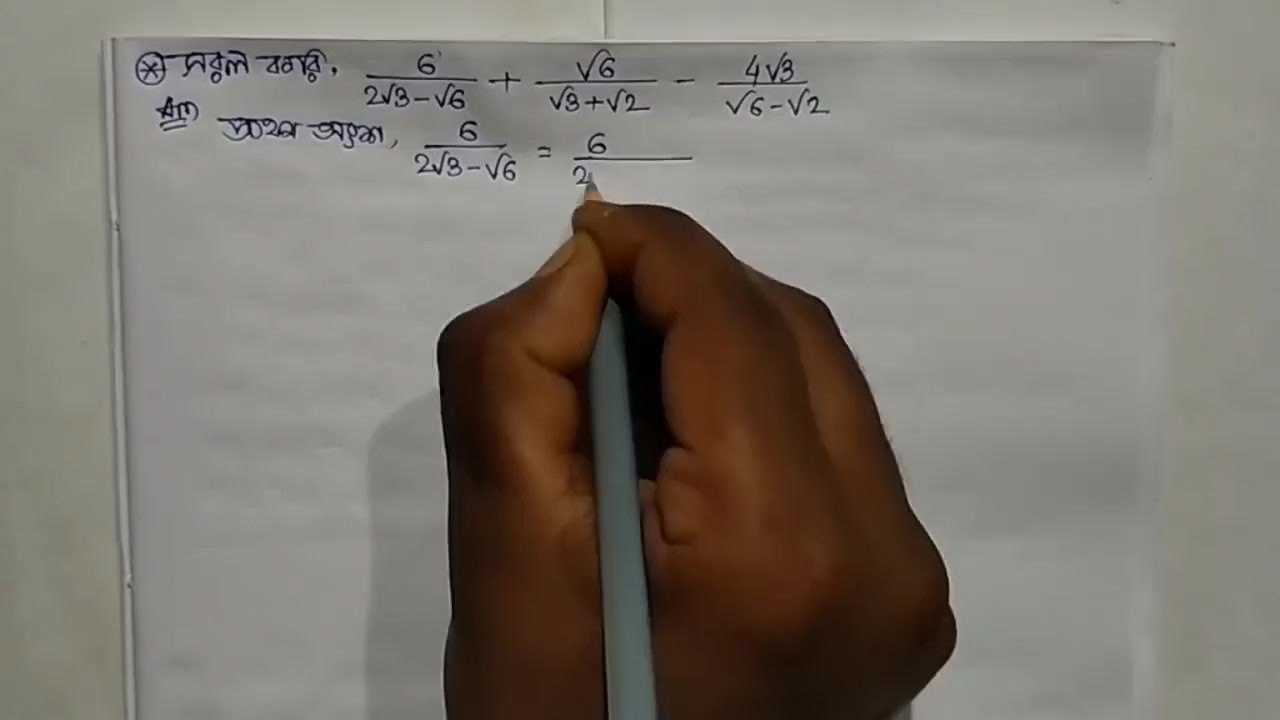 ⊛ সরল করি, 6/(2√3-√6) + √6/(√3+√2) - 4√3/(√6-√2)
Ans প্রথম অংশ, 6/(2√3-√6) = 6/2